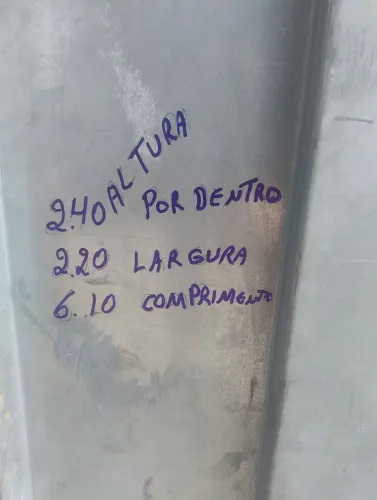 2.40 ALTURA POR DENTRO
2.20 LARGURA
6.10 COMPRIMENTO